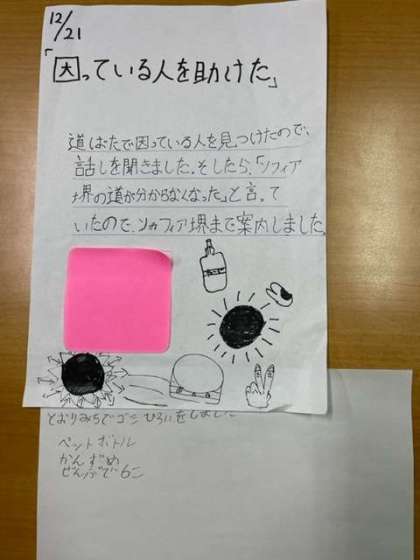 12/21
「困っている人を助けた」
道はたで困っている人を見つけたので、
話しを聞きました。そしたら、「ソフィア
堺の道が分からなくなった」と言って
いたので、ソフィア堺まで案内しました。
とおりみちでゴミひろいをしました
ペットボトル
かんづめ
ぜんぶで6こ